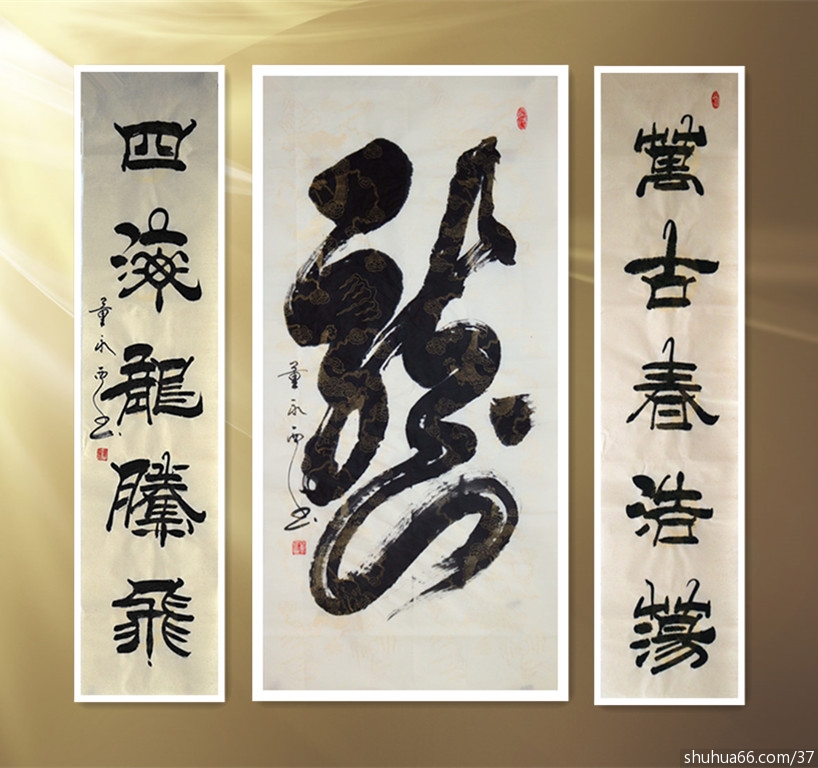 萬古春浩蕩
龍
董永西书
四海龍騰飛
董永西书
shuhua66.com/37